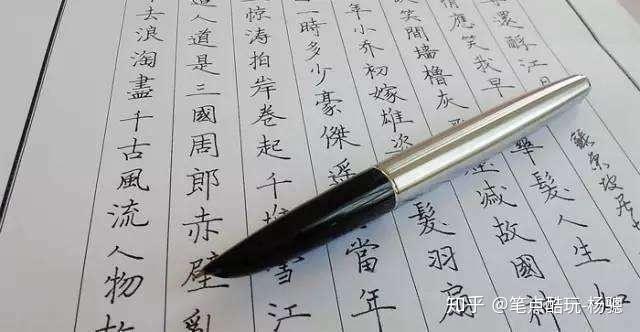 去浪淘盡千古風流人物故
人道是三國周郎赤壁亂
惊涛拍岸卷起千堆雪江
一時多少豪傑遥 當年
年小乔初嫁雄姿 髮羽扇
笑間墙櫓灰 滅故國神
情應笑我早 華髮人生如
還酹江月
蘇東坡居
知乎 @笔点酷玩-杨骢